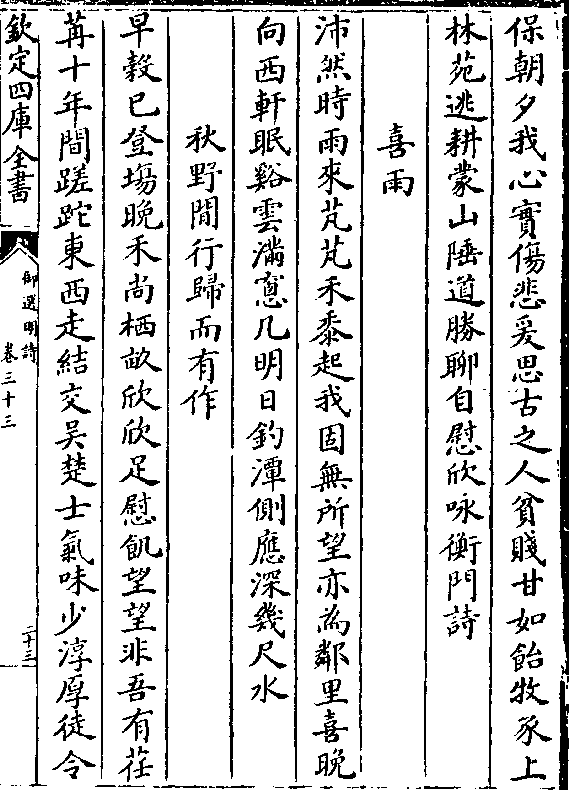 保朝夕我心實傷悲爰思古之人貧賤甘如飴牧豕上
林苑逃耕蒙山陲道勝聊自慰欣咏衡門詩
喜雨
沛然時雨來芃芃禾黍起我固無所望亦為鄰里喜晚
向西軒眠谿雲滿窻几明日釣潭側應深幾尺水
秋野間行歸而有作
早穀已登塲晚禾尚栖畝欣欣足慰飢望望非吾有荏
苒十年間蹉跎東西走結交吴楚士氣味少淳厚徒令
欽定四庫全書
御選明詩
卷三十三
二十三